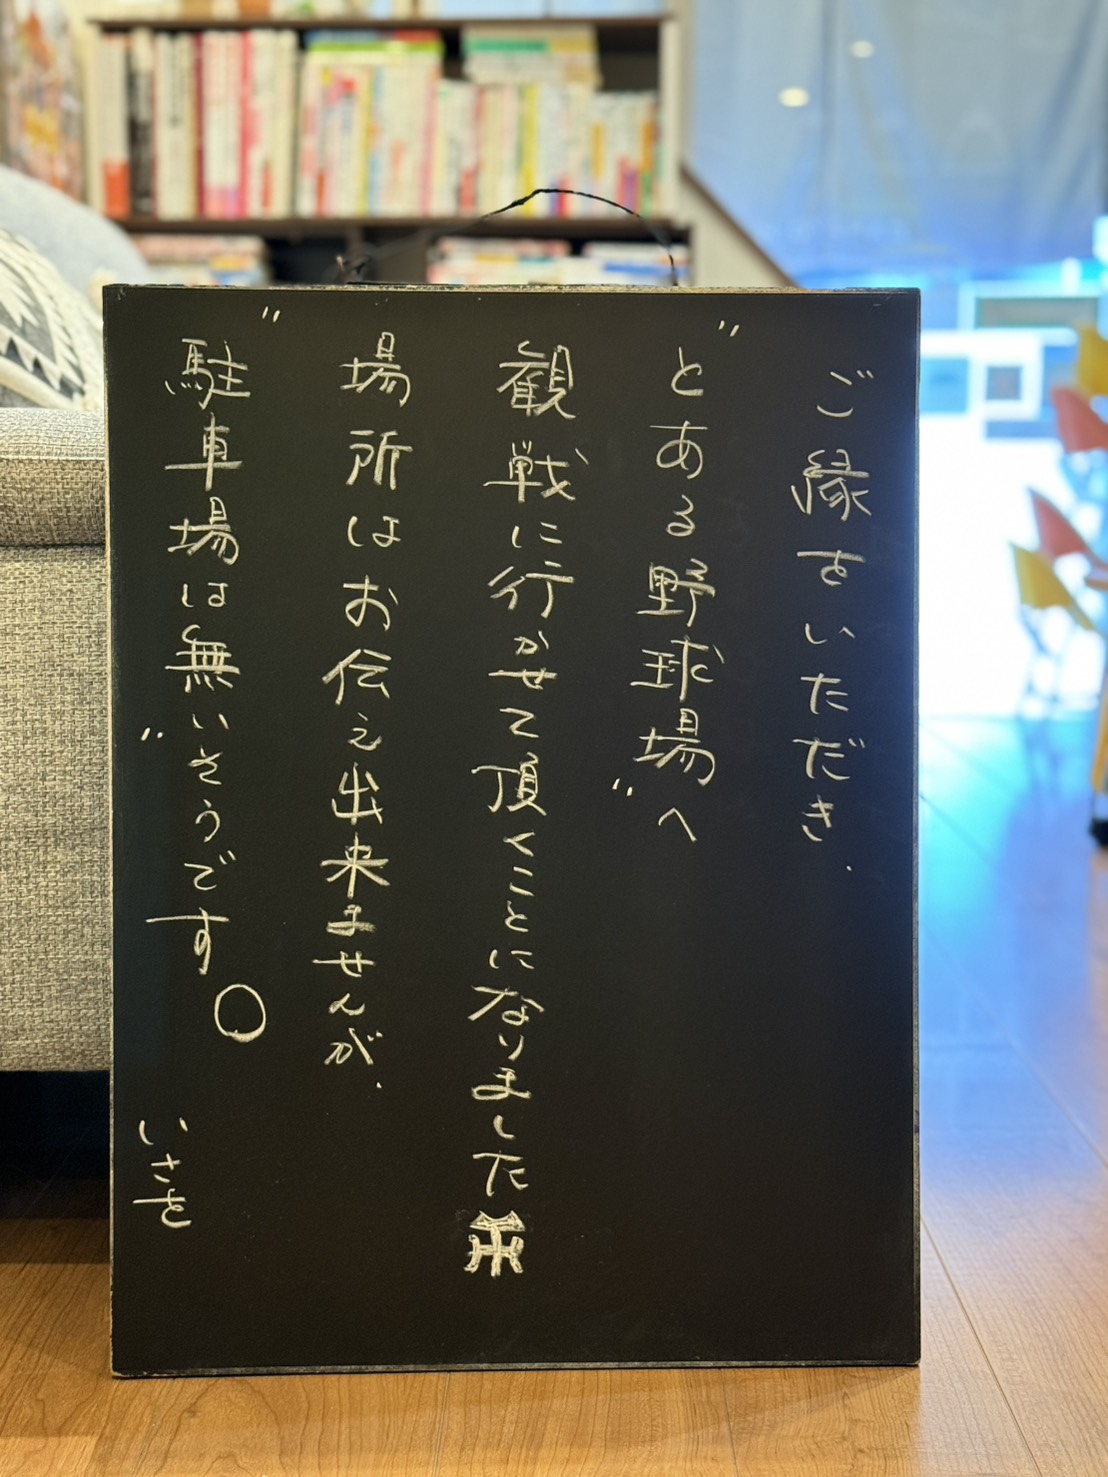 ご縁をいただき、
"とある野球場"へ
観戦に行かせて頂くことになりました
場所はお伝え出来ませんが、
"駐車場は無いさうです"。
いさを